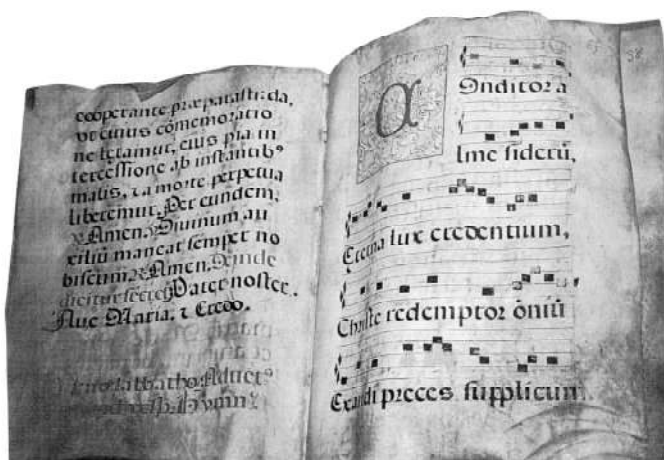 cooperante præparasti: da,
vt cuius cōmemoratio
ne letamur, eius pia in
tercessione ab instantibꝰ
malis, ⁊ a morte perpetua
liberemur. Per eundem.
℟ Amen. ℣ Diuinum au
xiliū maneat semper no
biscum. ℟ Amen. Deinde
dicitur secreto Pater noster.
Aue Maria. ⁊ Credo.
C
Onditor a
lme siderū,
Eterna lux credentium,
Christe redemptor ōniū
Exaudi preces supplicum.